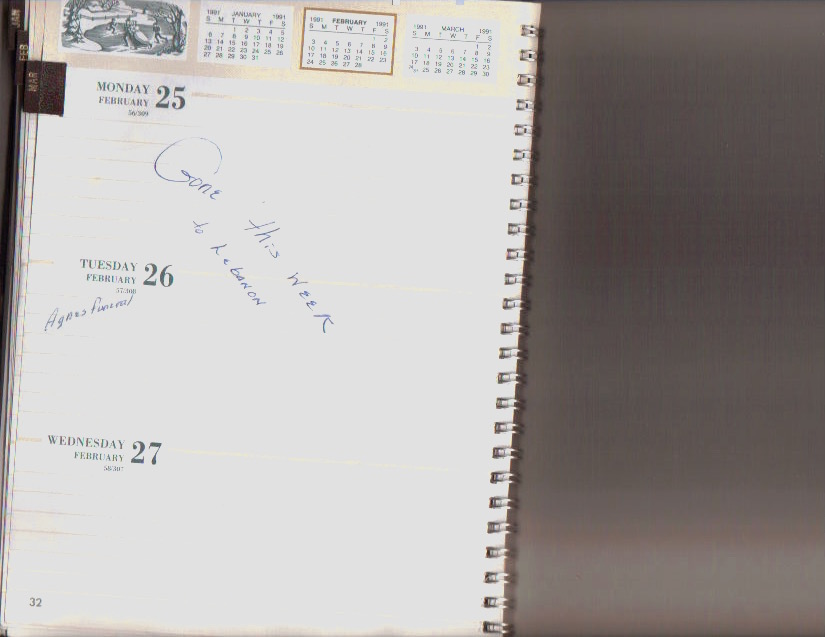 JAN
FEB
MAR
1991 JANUARY 1991
S M T W T F S
1 2 3 4 5
6 7 8 9 10 11 12
13 14 15 16 17 18 19
20 21 22 23 24 25 26
27 28 29 30 31
1991 FEBRUARY 1991
S M T W T F S
1 2
3 4 5 6 7 8 9
10 11 12 13 14 15 16
17 18 19 20 21 22 23
24 25 26 27 28
1991 MARCH 1991
S M T W T F S
1 2
3 4 5 6 7 8 9
10 11 12 13 14 15 16
17 18 19 20 21 22 23
24/31 25 26 27 28 29 30
MONDAY 25
FEBRUARY
56/309
Gone this WEEK
to Lebanon
TUESDAY 26
FEBRUARY
57/308
Agnes Funeral
WEDNESDAY 27
FEBRUARY
58/307
32